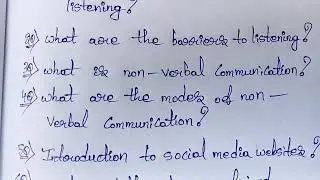 listening?
2Q) what are the barriers to listening?
3Q) what is non-verbal communication?
4Q) what are the modes of non-
verbal communication?
5Q) Introduction to social media websites?